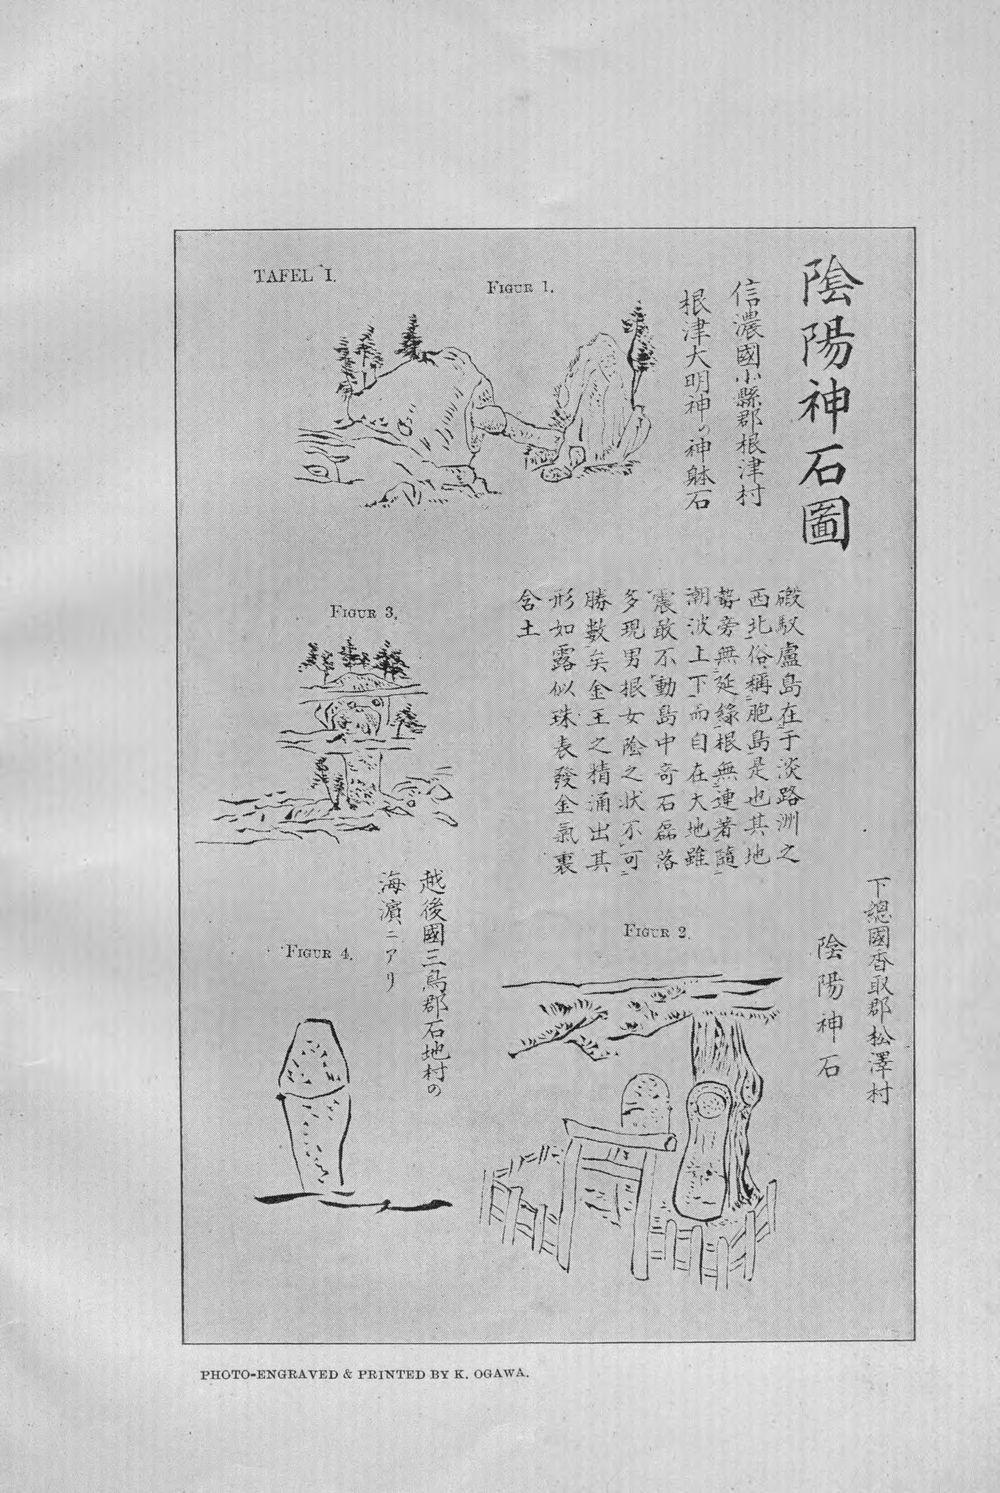 TAFEL I.
FIGUR 1.
陰陽神石圖
信濃國小縣郡根津村
根津大明神の神躰石
FIGUR 3.
磤馭盧島在于淡路洲之
西北俗稱胞島是也其地
勢旁無延緣根無連著隨
潮波上下而自在大地雖
震敢不動島中奇石磊落
多現男根女陰之狀不可
勝數矣金玉之精涌出其
形如露似珠表發金氣裏
含土
下總國香取郡松澤村
陰陽神石
FIGUR 2.
越後國三島郡石地村の
海濱ニアリ
FIGUR 4.
PHOTO-ENGRAVED & PRINTED BY K. OGAWA.